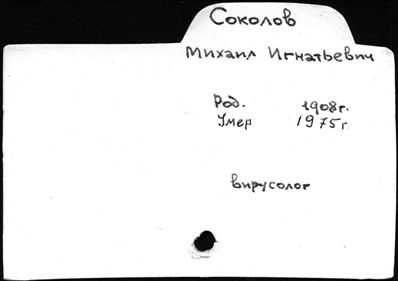 Соколов
Михаил Игнатьевич
Род. 1908г.
Умер 1975г
вирусолог